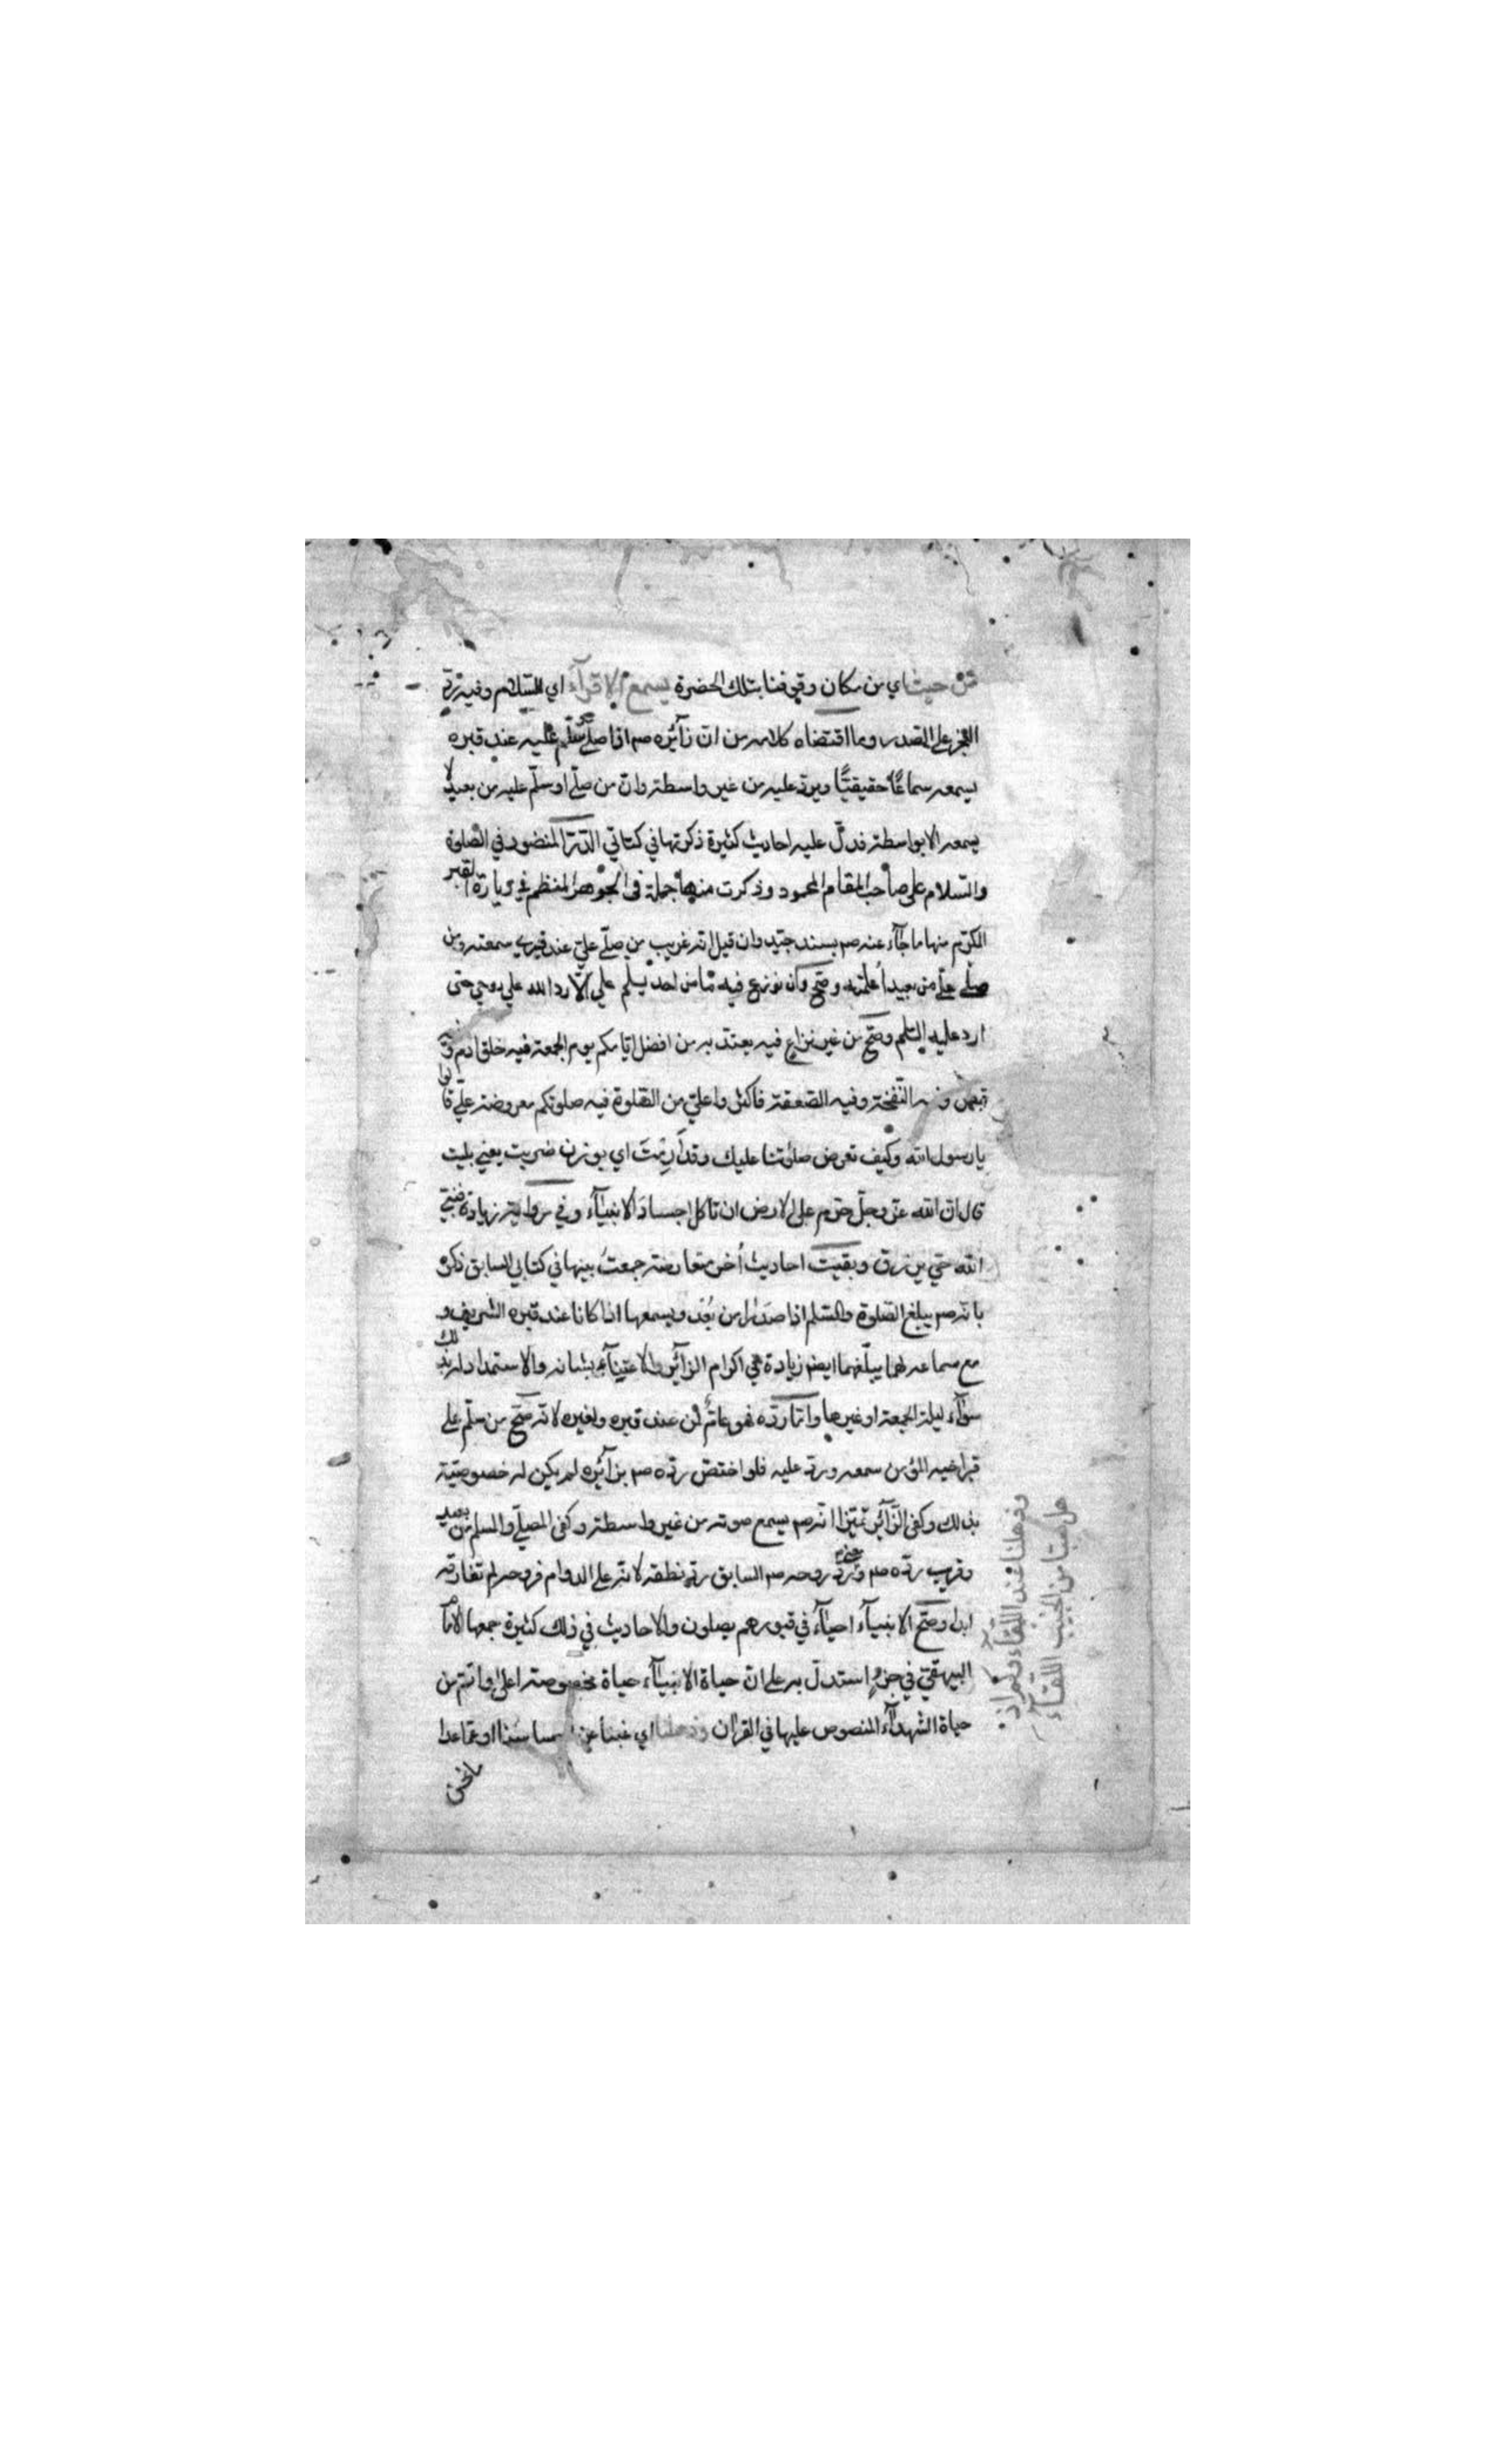 من حيث اي من مكان وقوفنا بتلك الحضرة يسمع الاقرآء اي السلام وفيه رد
العجز على الصدر وما اقتضاه كلامه من ان زآئره صم اذا صلى وسلم عليه عند قبره
يسمعه سماعًا حقيقيًّا ويرد عليه من غير واسطة وان من صلّى او سلّم عليه من بعيد لا
يسمعه الا بواسطة فدلّ عليه احاديث كثيرة ذكرتها في كتابي الدّرّ المنضود في الصلوة
والسلام على صاحب المقام المحمود وذكرت منها جملة في الجوهر المنظم في زيارة القبر
المكرّم منها ما جآء عنه صم بسند جيّد وان قيل انه غريب من صلّى عليّ عند قبري سمعته ومن
صلى عليّ من بعيد اُعلمته وصحّ وان نوزع فيه ما من احد يسلم علي الّا رد الله علي روحي حتى
ارد عليه السلم وصحّ من غير نزاع فيه يعتد به من افضل ايامكم يوم الجمعة فيه خلق ادم وفيه
قبض وفيه النّفخة وفيه الصعقة فاكثروا عليّ من الصّلوة فيه صلوتكم معروضة عليّ قالوا
يا رسول الله وكيف تعرض صلوتنا عليك وقد اَرِمْتَ اي بوزن ضربت يعني بليت
قال ان الله عزّ وجلّ حرّم على الارض ان تاكل اجسادَ الانبيآء وفي رواية زيادة فنبيّ
الله حيّ يرزق وبقيت احاديث اُخر متعارضة جمعتُ بينها في كتابي السابق ذكره
بانه صم يبلغ الصّلوة والسّلم اذا صدرا من بُعْد ويسمعها اذا كانا عند قبره الشريف و
مع سماعه لهما يبلّغهما ايضا زيادة في اكرام الزآئر والاعتنآء بشانه والاستمداد له بذلك
سوآء ليلة الجمعة او غيرها وامّا ردّه فهو عامّ لمن عند قبره ولغيره لانه صحّ من سلّم على
قبر اخيه المؤمن سمعه ورد عليه فلو اختصّ ردّه صم بزآئره لم يكن له خصوصيّة
بذلك وكفى الزّآئر تميّزا انّه صم يسمع صوته من غير واسطة وكفى المصلّي والمسلم من بعيد
وقريب ردّه صم ومعنى ردّ روحه صم السابق ردّ نطقه لانه على الدوام فروحه لم تفارقه
ابدا وصحّ الانبيآء احيآء في قبورهم يصلون والاحاديث في ذلك كثيرة جمعها الامام
البيهقيّ في جزءٍ استدلّ به على انّ حياة الانبيآء حياة مخصوصة اعلى واتم من
حياة الشهدآء المنصوص عليها في القرآن وذهلنا اي غبنا عن احساسنا او عمّا عدا
ما نحن
وذهلنا عند اللقآء وكم اذ
هل صبّا من الحبيب اللقآء